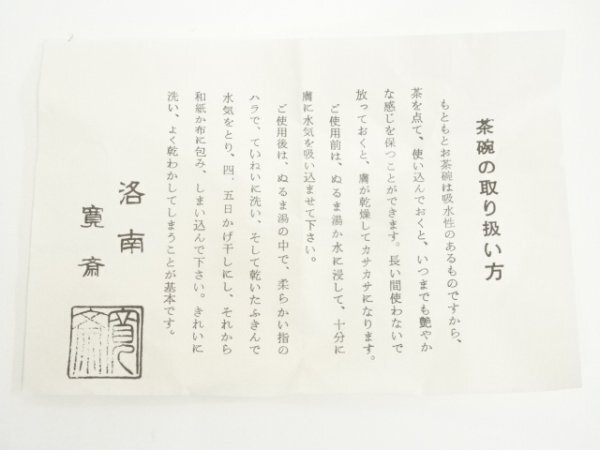 茶碗の取り扱い方
もともとお茶碗は吸水性のあるものですから、
茶を点て、使い込んでおくと、いつまでも艶やか
な感じを保つことができます。長い間使わないで
放っておくと、膚が乾燥してカサカサになります。
ご使用前は、ぬるま湯か水に浸して、十分に
膚に水気を吸い込ませて下さい。
ご使用後は、ぬるま湯の中で、柔らかい指の
ハラで、ていねいに洗い、そして乾いたふきんで
水気をとり、四、五日かげ干しにし、それから
和紙か布に包み、しまい込んで下さい。きれいに
洗い、よく乾わかしてしまうことが基本です。
洛南
寛斎
寛斎